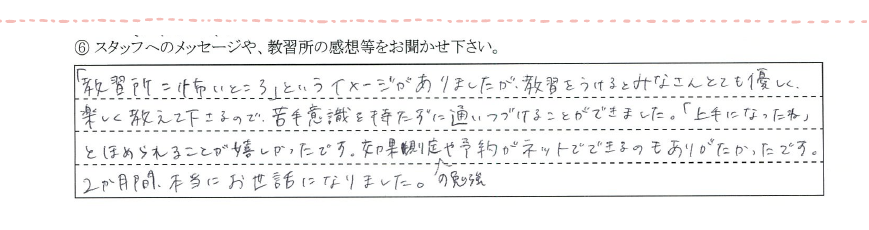 ⑥ スタッフへのメッセージや、教習所の感想等をお聞かせ下さい。
「教習所＝怖いところ」というイメージがありましたが、教習をうけるとみなさんとても優しく、
楽しく教えて下さるので、苦手意識を持たずに通いつづけることができました。「上手になったね」
とほめられることが嬉しかったです。効果測定や予約がネットでできるのもありがたかったです。
の勉強
2か月間、本当にお世話になりました。